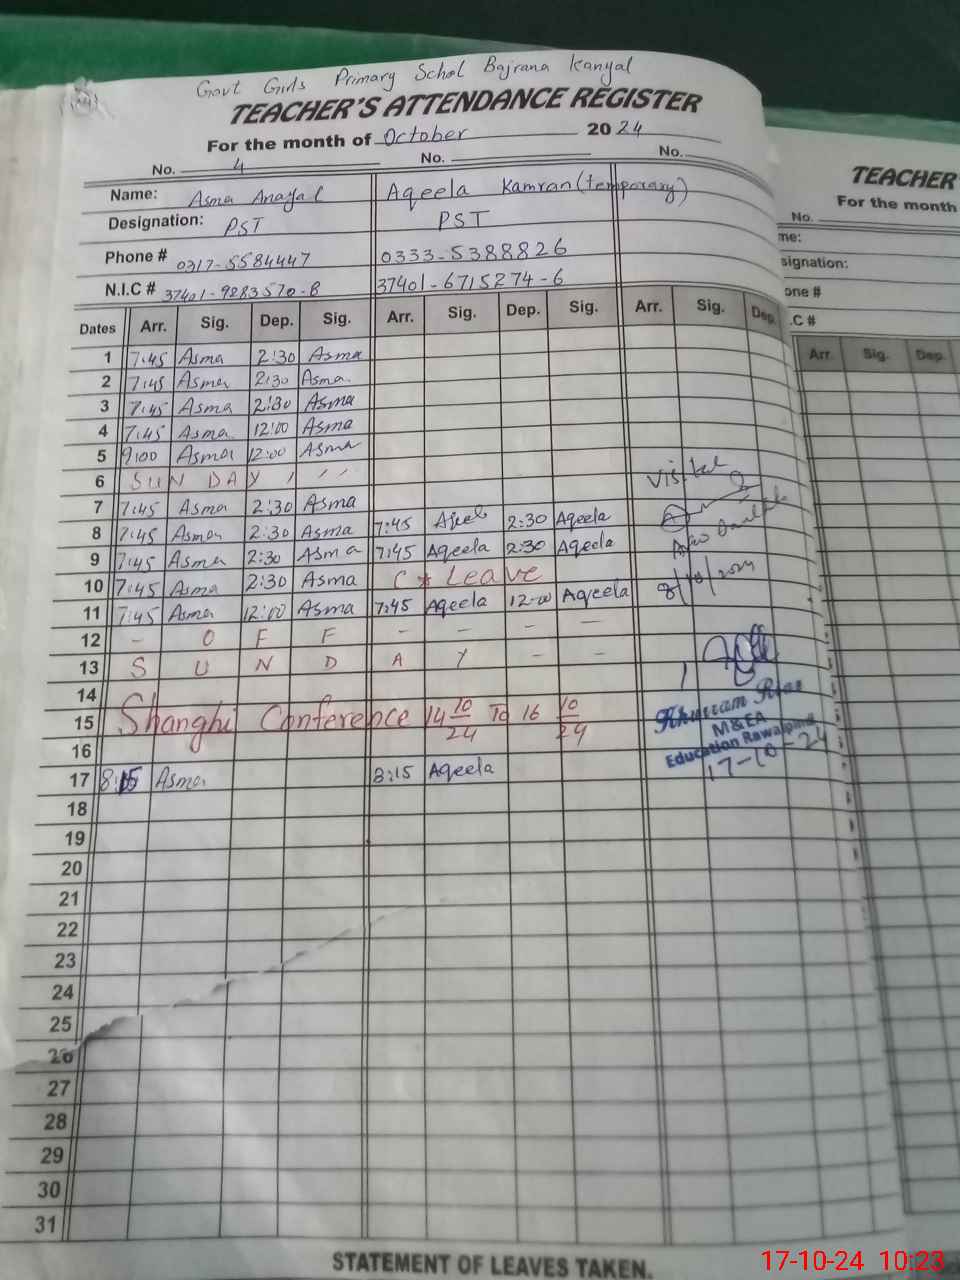 Govt Girls Primary Schol Bajrana Kanyal
TEACHER'S ATTENDANCE REGISTER
For the month of October 2024
No. 4 No. No.
Name: Asma Anayal Aqeela Kamran (temporary)
Designation: PST PST
Phone # 0317-5584447 0333-5388826
N.I.C # 37401-9283570-8 37401-6715274-6
Dates Arr. Sig. Dep. Sig. Arr. Sig. Dep. Sig. Arr. Sig. Dep.
1 7:45 Asma 2:30 Asma
2 7:45 Asma 2:30 Asma
3 7:45 Asma 2:30 Asma
4 7:45 Asma 12:00 Asma
5 9:00 Asma 12:00 Asma
6 SUN DAY
7 7:45 Asma 2:30 Asma
8 7:45 Asma 2:30 Asma 7:45 Aqeela 2:30 Aqeela
9 7:45 Asma 2:30 Asma 7:45 Aqeela 2:30 Aqeela
10 7:45 Asma 2:30 Asma C Leave
11 7:45 Asma 12:00 Asma 7:45 Aqeela 12-00 Aqeela
12 - O F F - - - -
13 S U N D A Y - -
14
15 Shanghi Conference 14 10/24 To 16 10/24
16
17 8:15 Asma 8:15 Aqeela
18
19
20
21
22
23
24
25
26
27
28
29
30
31
Visited
8/10/2024
Khurram Riaz
M&EA
Education Rawalpindi
17-10-24
STATEMENT OF LEAVES TAKEN.
TEACHER
For the month
No.
me:
signation:
one #
.C #
Arr. Sig. Dep.
17-10-24 10:23